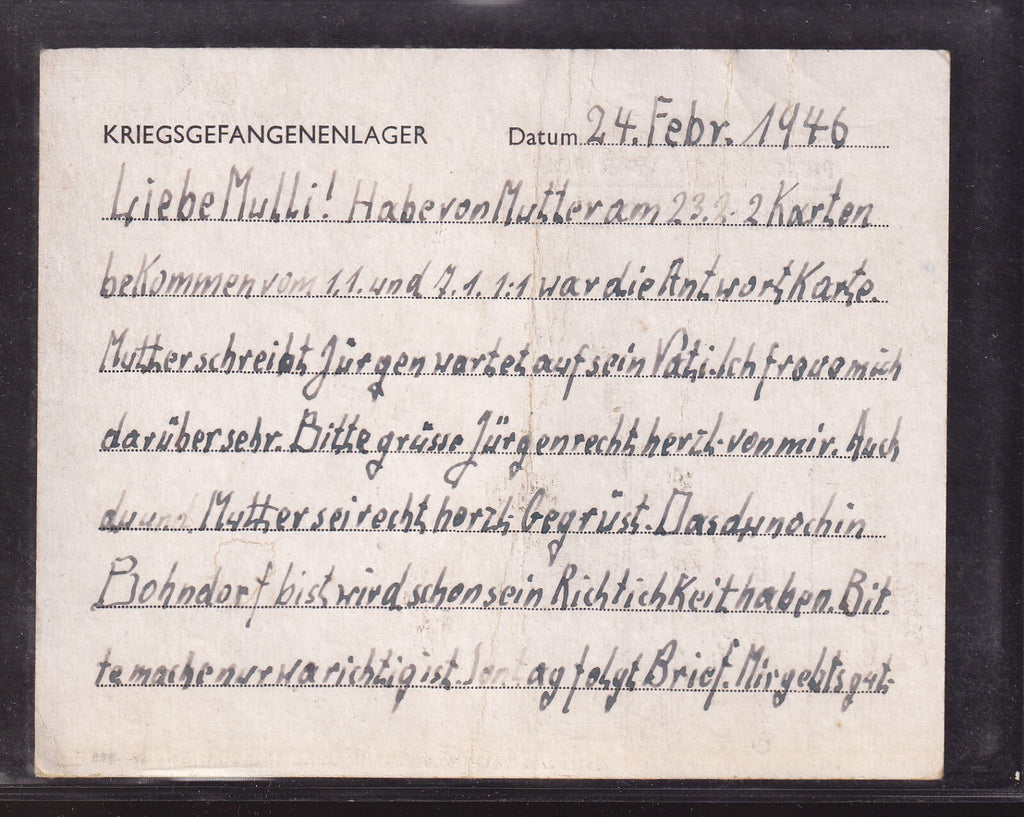 KRIEGSGEFANGENENLAGER Datum 24. Febr. 1946
Liebe Mulli! Habe von Mutter am 23.2. 2 Karten
bekommen vom 1.1. und 7.1. 1.1 war die Antwort Karte.
Mutter schreibt Jürgen wartet auf sein Vati. Ich freue mich
darüber sehr. Bitte grüsse Jürgen recht herzl. von mir. Auch
du und Mutter sei recht herzl. Gegrüst. Das du noch in
Bohndorf bist wird schon sein Richtichkeit haben. Bit.
te mache nur wa richtig ist. Sontag folgt Brief. Mir gehts gut.